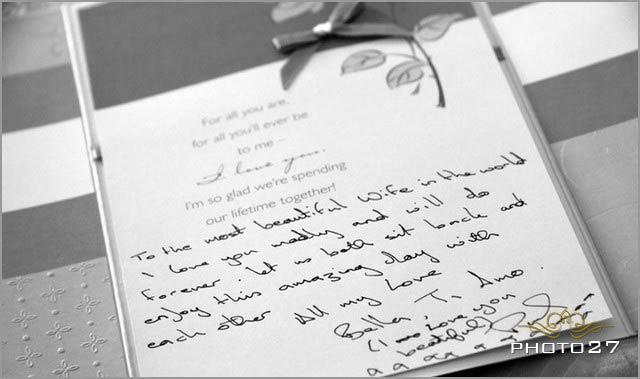 For all you are,
for all you'll ever be
to me –
I love you.
I'm so glad we're spending
our lifetime together!
To the most beautiful Wife in the world
I love you madly and will do
forever. let us both sit back and
enjoy this amazing day with
each other All my love
Bella, Ti Amo.
(I love you
beautiful)
PHOTO27